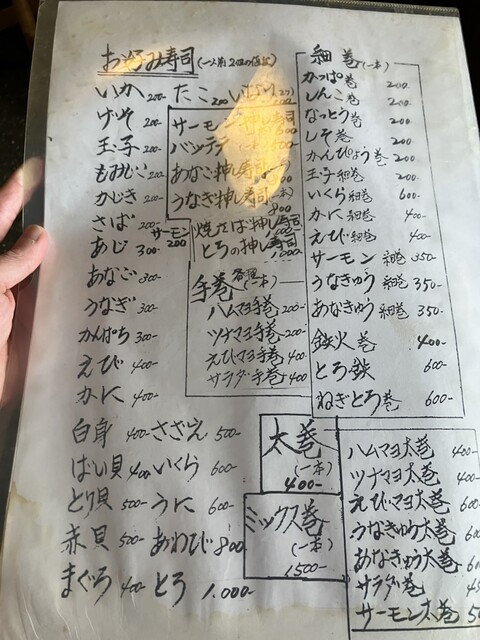 お好み寿司(一人前2個の値段)
いか 200-
げそ 200-
玉子 200-
もみじこ 200-
かじき 200-
さば 200-
あじ 300-
あなご 300-
うなぎ 300-
かんぱち 300-
えび 400-
かに 400-
白身 400-
ばい貝 400
とり貝 500-
赤貝 500-
まぐろ 400-
たこ 200
いなり
サーモン 200
さざえ 500-
いくら 600-
うに 600-
あわび 800
とろ 1.000-
サーモン押し寿司
バッテラ
あなご押し寿司
うなぎ押し寿司(一本) 800
焼さば押し寿司
とろの押し寿司 1.000
手巻 各種(一本)
ハムマヨ手巻 200-
ツナマヨ手巻 200-
えびマヨ手巻 400
サラダ手巻 400
細巻(一本)
かっぱ巻 200
しんこ巻 200
なっとう巻 200
しそ巻 200
かんぴょう巻 200
玉子細巻 200-
いくら細巻 600-
かに細巻 400-
えび細巻 400-
サーモン細巻 350-
うなきゅう細巻 350-
あなきゅう細巻 350-
鉄火巻 400-
とろ鉄 600-
ねぎとろ巻 600-
太巻
(一本)
400-
ミックス巻
(一本)
1500-
ハムマヨ太巻 400-
ツナマヨ太巻 400-
えびマヨ太巻 600-
うなきゅう太巻
あなきゅう太巻
サラダ巻
サーモン太巻